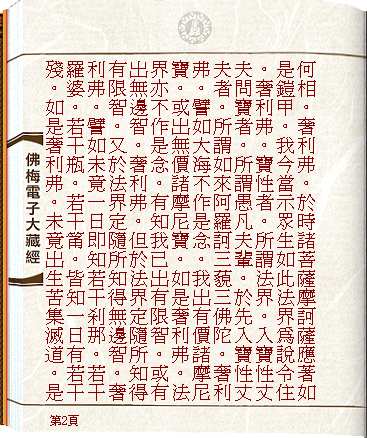 何相。奢利弗。於時諸菩薩摩訶薩應著如
是鎧甲。我今當示眾生如此法界為說令住
。奢利弗。寶性者。所謂法界。入寶性丈
夫問寶者。所謂愚凡夫輩。於先入寶性丈
夫者。所謂如來阿羅訶三藐三佛陀。奢利
弗。譬如大海不作是念。我出有價諸摩尼
寶。或出無價諸摩尼寶。如是奢利弗。法
界。不作是念。有知我已出有限智。或有
出無邊智。奢利弗。但於法界定隨所知得
有限智。又於法界定隨所知得無邊智。奢
利弗。譬如未竟一日即知若干刹那。若干
羅婆。若干瓶。若干筩。皆知一日。若干
殘。如是奢利弗。未竟出生苦集滅道。是
佛梅電子大藏經
第2頁